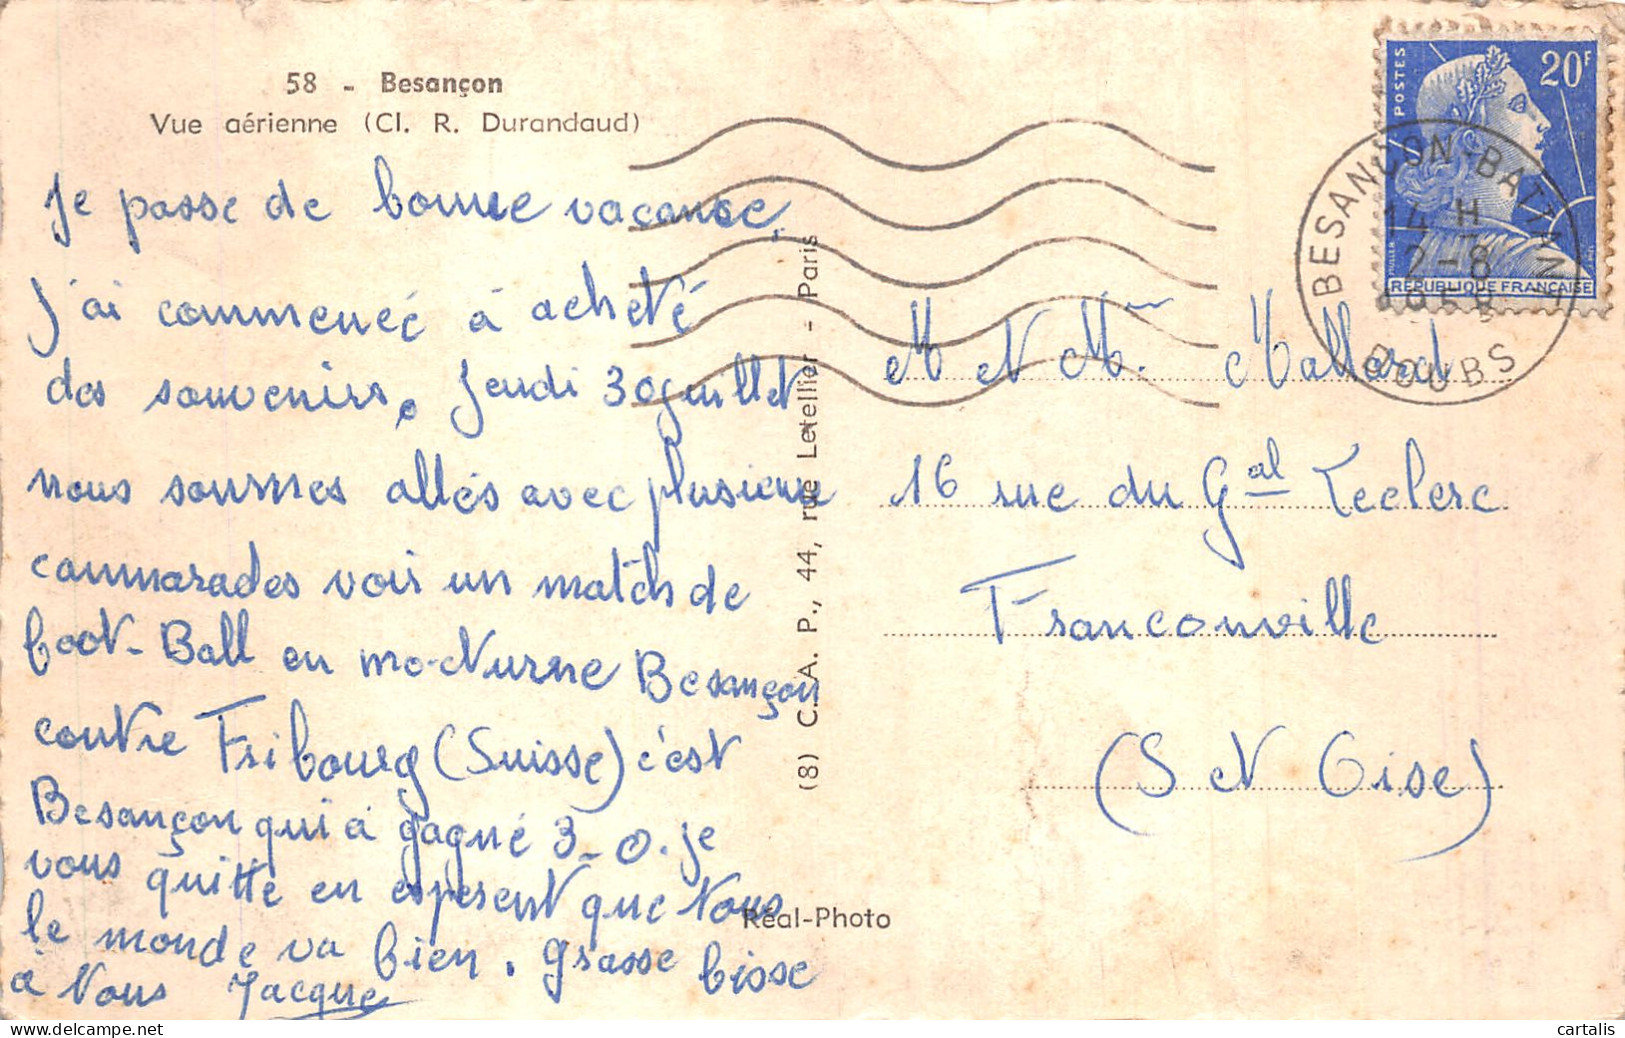 58 - Besançon
Vue aérienne (Cl. R. Durandaud)
Je passe de bonne vacance,
J'ai commencé à acheté
des souvenirs. Jeudi 30 juillet
nous sommes allés avec plusieur
cammarades voir un match de
foot-Ball en mo-cturne Besançon
contre Fribourg (Suisse) c'est
Besançon qui à gagné 3-0. je
vous quitte en espesent que tous
le monde va bien. grasse bisse
à tous Jacque
(8) C. A. P., 44, rue Letellier - Paris
Réal-Photo
POSTES
20F
MULLER
REPUBLIQUE FRANÇAISE
BESANÇON-BATTANT
14 H
2-8
1958
DOUBS
M et Mme Mallard
16 rue du Gal Leclerc
Franconville
(S et Oise)
cartalis